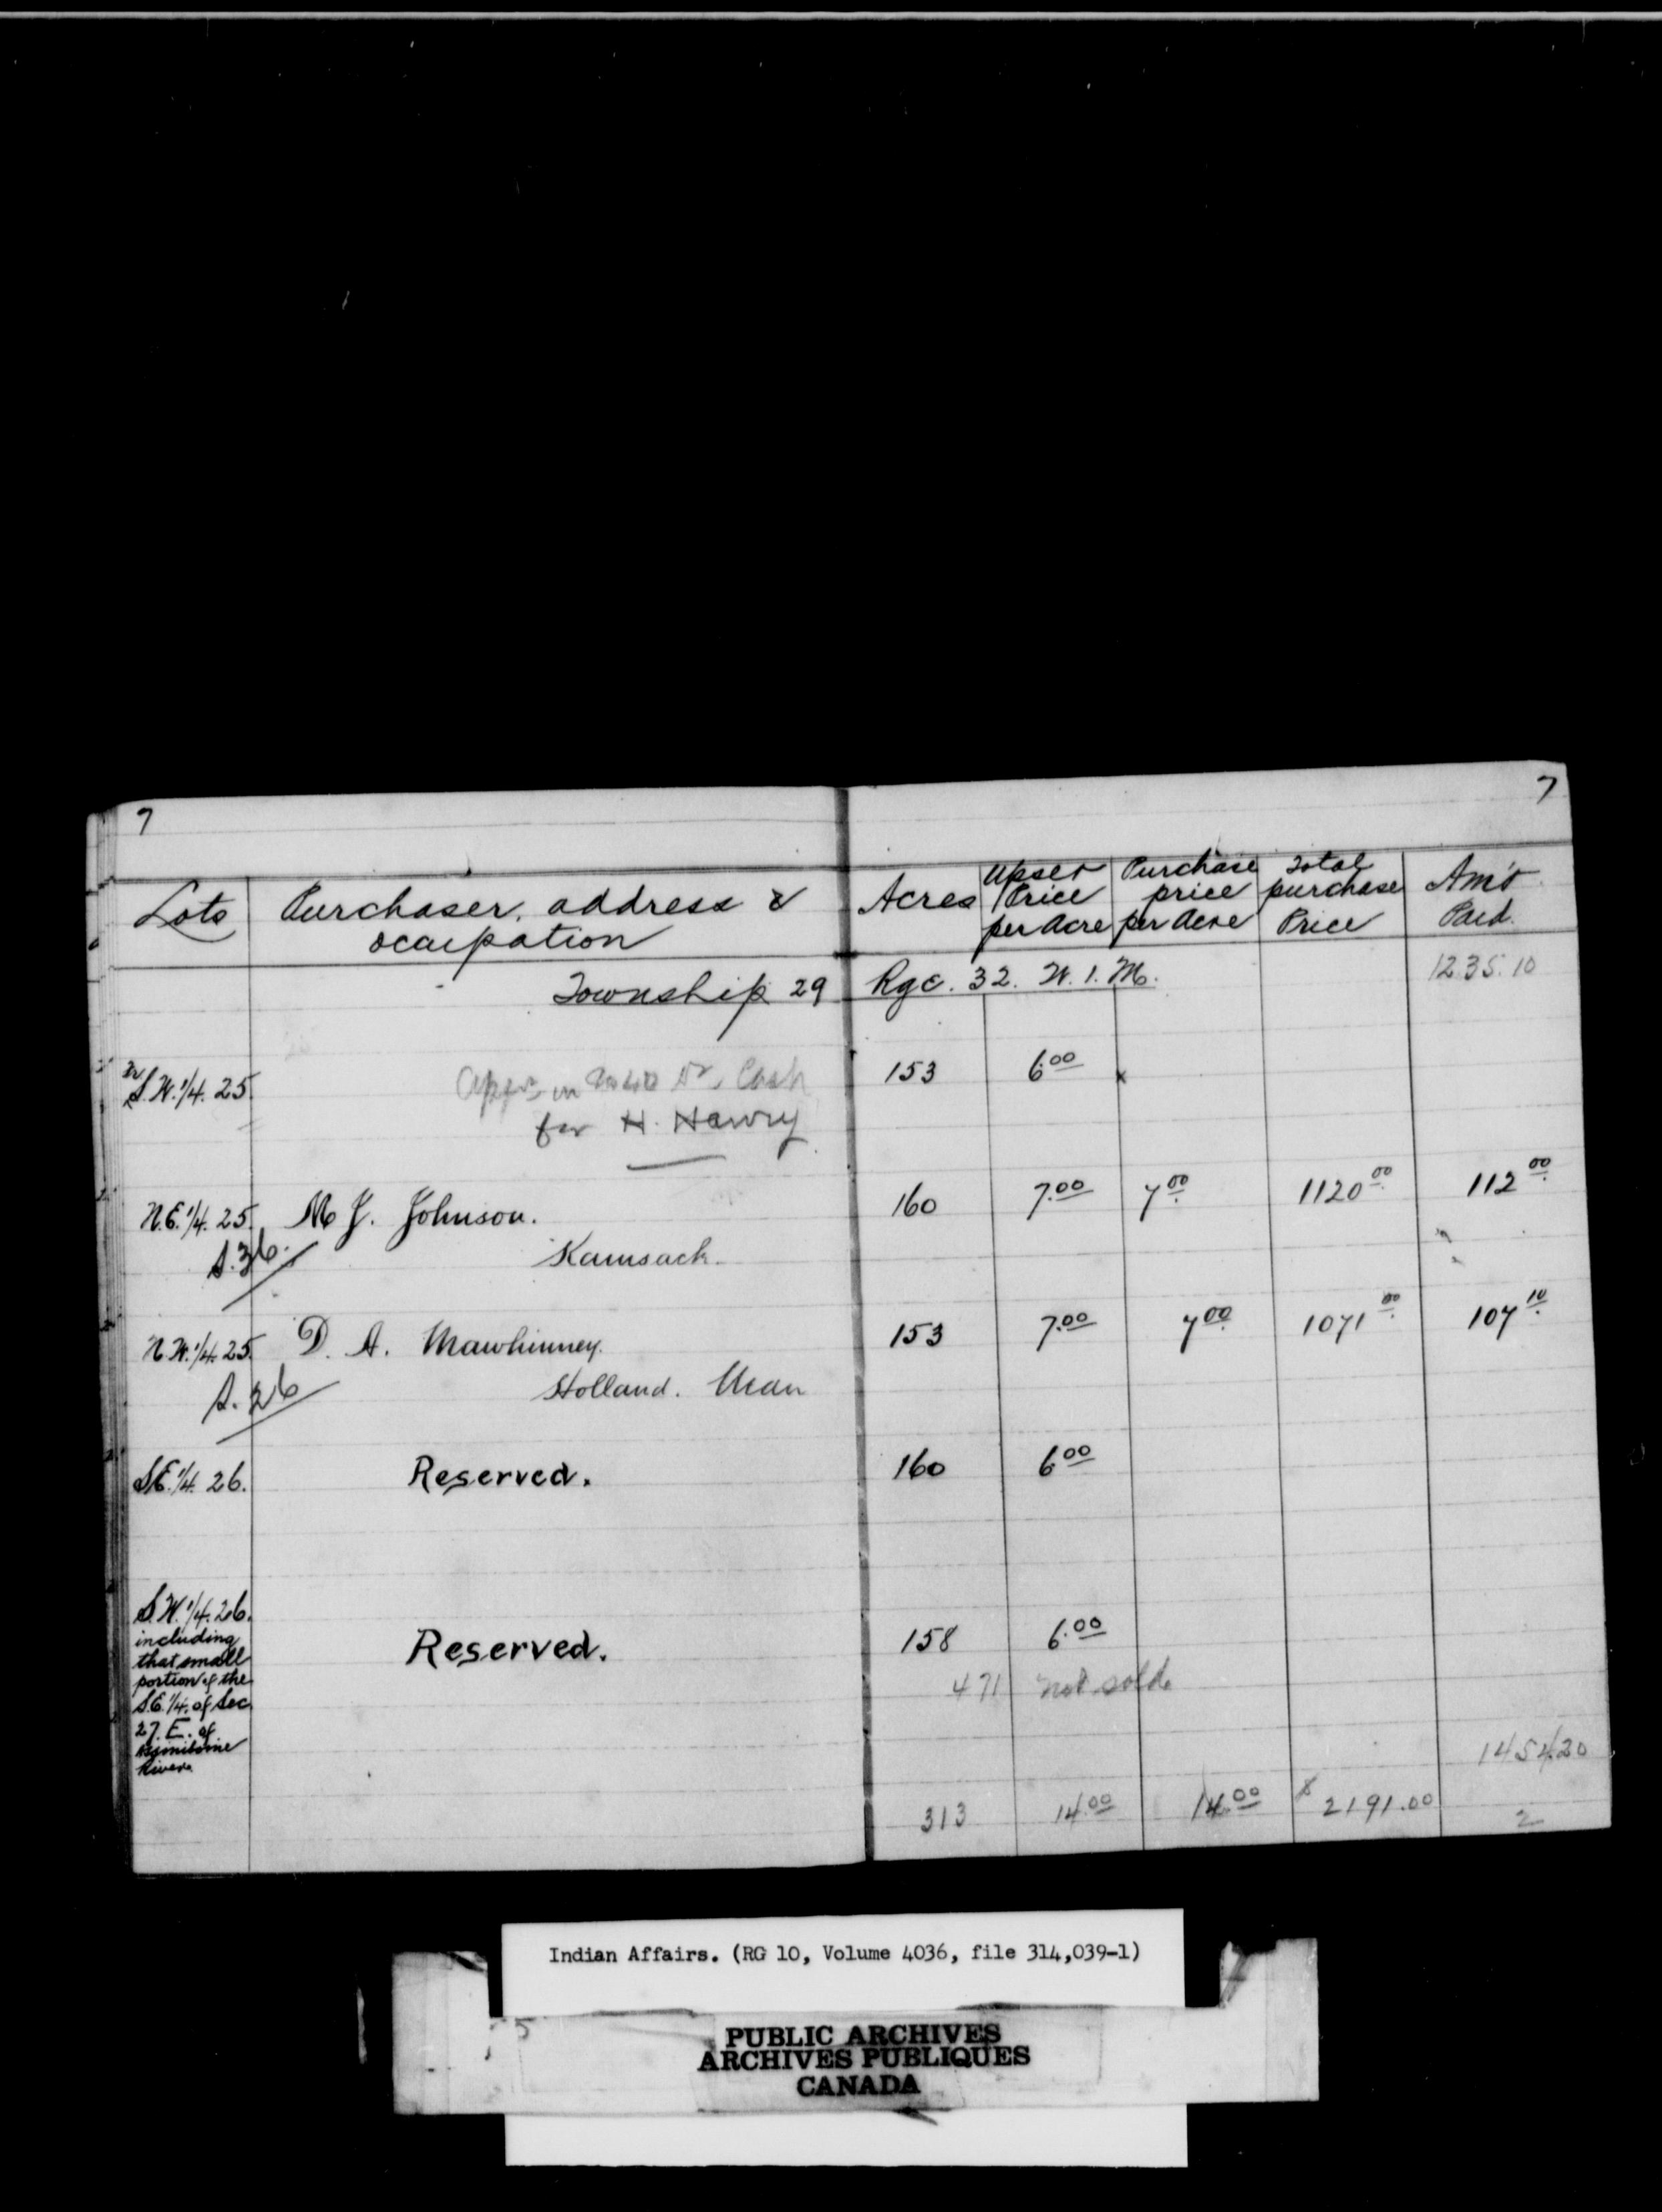 7 7
Lots Purchaser, address & Acres Upset Price per Acre Purchase price per Acre Total purchase Price Am't Paid.
ocaupation
Township 29 Rge. 32. W. 1. M. 1235.10
S.W. 1/4. 25. Cash 153 6.00 x
for H. Hawry
N.E. 1/4. 25. M J. Johnson. 160 7.00 7.00 1120.00 112.00
S.36. Kamsack.
N.W. 1/4. 25. D. A. Mawhinney. 153 7.00 7.00 1071.00 107.10
S.26 Holland. Man
S.E. 1/4. 26. Reserved. 160 6.00
S.W. 1/4. 26. Reserved. 158 6.00
including
that small
portion of the
S.E. 1/4. of Sec
27. E. of
Assiniboine
River.
471 not sold.
1454.20
313 14.00 14.00 $2191.00 2
Indian Affairs. (RG 10, Volume 4036, file 314,039-1)
5
PUBLIC ARCHIVES
ARCHIVES PUBLIQUES
CANADA